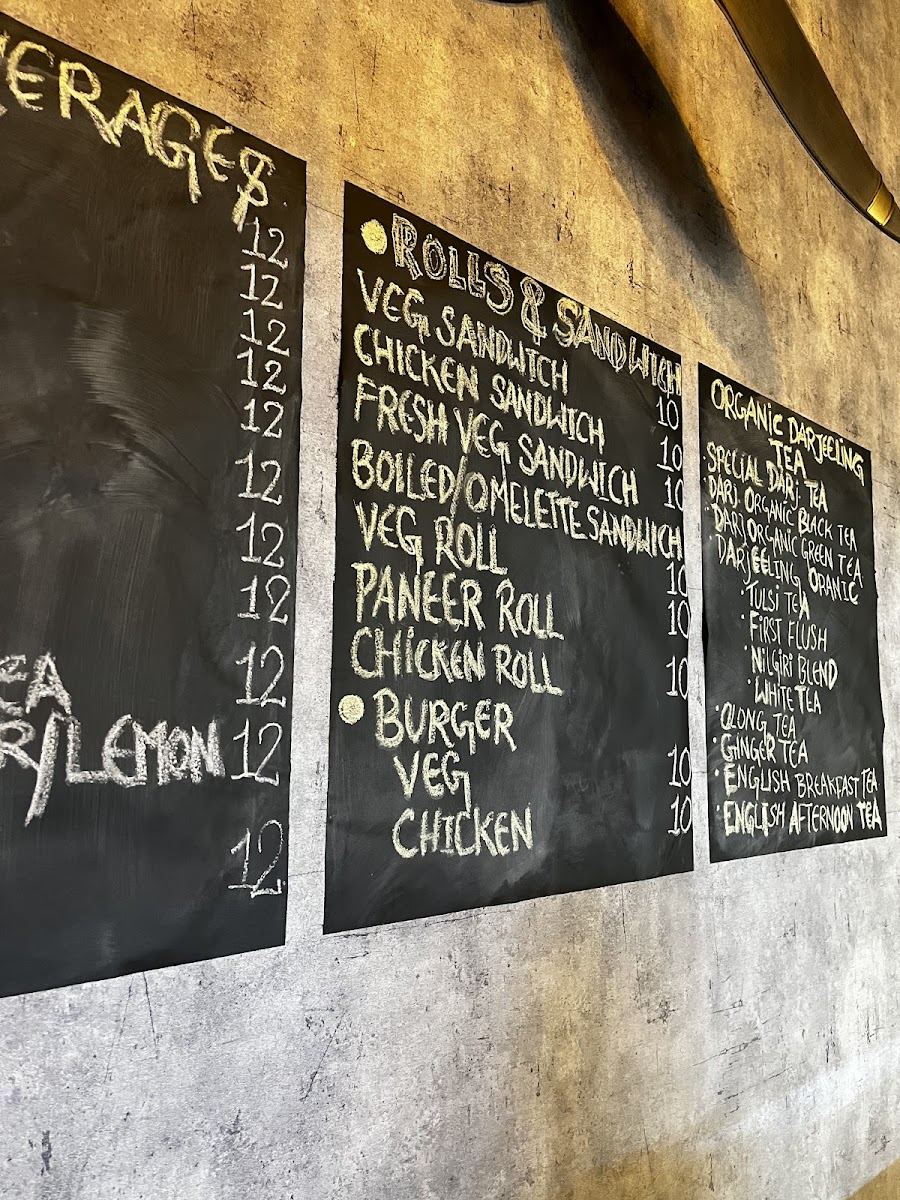 ERAGES
$
12
12
12
12
12
12
12
12
EA 12
R/LEMON 12
12
ROLLS & SANDWICH
VEG SANDWICH 10
CHICKEN SANDWICH 10
FRESH VEG SANDWICH 10
BOILED/OMELETTE SANDWICH
VEG ROLL 10
PANEER ROLL 10
CHICKEN ROLL 10
BURGER
VEG 10
CHICKEN 10
ORGANIC DARJEELING
TEA
SPECIAL DARJ. TEA
DARJ. ORGANIC BLACK TEA
DARJ ORGANIC GREEN TEA
DARJEELING ORANIC
TULSI TEA
FIRST FLUSH
NILGIRI BLEND
WHITE TEA
OLONG TEA
GINGER TEA
ENGLISH BREAKFAST TEA
ENGLISH AFTERNOON TEA